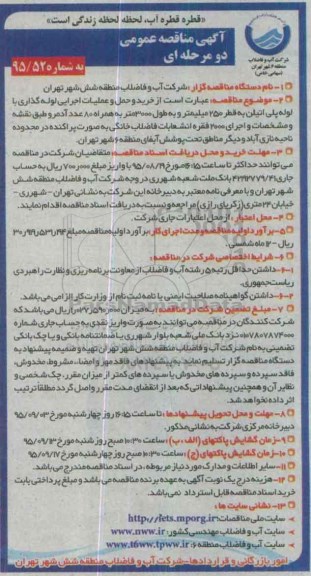 «قطره قطره آب، لحظه لحظه زندگی است»
آگهی مناقصه عمومی
دو مرحله ای
به شماره ۹۵/۵۲
شرکت آب و فاضلاب
منطقه ۶ شهر تهران
(سهامی خاص)
۱- نام دستگاه مناقصه گزار: شرکت آب و فاضلاب منطقه شش شهر تهران
۲- موضوع مناقصه: عبارت است از خرید و حمل و عملیات اجرایی لوله گذاری با
لوله پلی اتیلن به قطر ۲۵۰ میلیمتر و به طول ۳۰۰۰ متر به همراه ۸۰ عدد آدم رو طبق نقشه
و مشخصات و اجرای ۲۰۰۰ فقره انشعابات فاضلاب خانگی به صورت پراکنده در محدوده
ناحیه نازی آباد و دیگر مناطق تحت پوشش آبفای منطقه ۶ شهر تهران.
۳- مهلت خرید و محل دریافت اسناد مناقصه: متقاضیان شرکت در مناقصه
می توانند حداکثر تا ساعت ۱۵ مورخ ۹۵/۰۸/۱۹ با واریز مبلغ ۷۰۰,۰۰۰ ریال به حساب
جاری ۴۲۹۲۷۹/۴۱ بانک ملت شعبه شهرری در وجه شرکت آب و فاضلاب منطقه شش
شهر تهران و با معرفی نامه معتبر به دبیرخانه این شرکت به نشانی تهران - شهرری -
خیابان ۲۴ متری (زکریای رازی) مراجعه و نسبت به دریافت اسناد مناقصه اقدام نمایند.
۴- محل اعتبار: از محل اعتبارات جاری شرکت.
۵- برآورد اولیه مناقصه و مدت اجرای کار: برآورد اولیه مناقصه مبلغ
ریال - ۱۲ ماه شمسی.
۶- شرایط اختصاصی شرکت در مناقصه:
۱-۶- داشتن حداقل رتبه ۵ رشته آب و فاضلاب از معاونت برنامه ریزی و نظارت راهبردی
ریاست جمهوری.
۲-۶- داشتن گواهینامه صلاحیت ایمنی یا نامه ثبت نام از وزارت کار الزامی می باشد.
۷- مبلغ تضمین شرکت در مناقصه: به میزان ریال می باشد که
شرکت کنندگان در مناقصه، می توانند به صورت واریز نقدی به حساب جاری شماره
نزد بانک ملی شعبه بلوار شهرری یا ضمانتنامه بانکی و یا چک بانکی
تضمینی به نام شرکت آب و فاضلاب منطقه شش شهر تهران تهیه و ضمیمه پیشنهاد به
دستگاه مناقصه گزار تسلیم نماید. به پیشنهادهای فاقد مهر و امضاء، مشروط، مخدوش،
فاقد سپرده و سپرده های مخدوش یا سپرده های کمتر از میزان مقرر، چک شخصی و
نظایر آن و همچنین پیشنهاداتی که بعد از انقضای مدت مقرر واصل گردد مطلقاً ترتیب
اثر داده نخواهد شد.
۸- مهلت و محل تحویل پیشنهادها: تا ساعت ۱۶:۱۵ روز چهارشنبه مورخ ۹۵/۰۹/۰۳
دبیرخانه مرکزی شرکت به نشانی مذکور.
۹- زمان گشایش پاکتهای (الف، ب): ساعت ۱۰:۳۰ صبح روز شنبه مورخ ۹۵/۰۹/۱۳
۱۰- زمان گشایش پاکتهای (ج): ساعت ۱۰:۳۰ صبح روز چهارشنبه مورخ ۹۵/۰۹/۱۷
۱۱- سایر اطلاعات و مدارک مورد نیاز مربوطه، در اسناد مناقصه مندرج می باشد.
۱۲- هزینه درج یک نوبت آگهی به عهده برنده مناقصه می باشد و مبلغ پرداختی بابت
خرید اسناد مناقصه قابل استرداد نمی باشد.
۱۳- نشانی سایت ها:
سایت ملی مناقصات: http://iets.mporg.ir
سایت آب و فاضلاب مهندسی کشور: www.nww.ir
سایت آب و فاضلاب منطقه ۶: www.t6ww.tpww.ir
امور بازرگانی و قراردادها - شرکت آب و فاضلاب منطقه شش شهر تهران